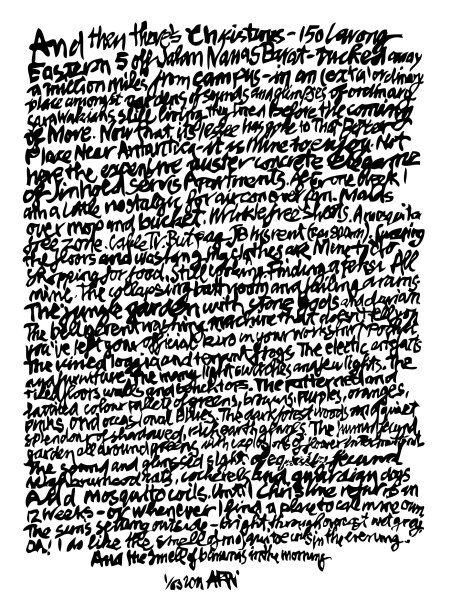 And then there's Christine's - 150 Lorong
Eastern 5 off Jalan Nanas Barat - tucked away
a million miles from campus - in an (extra) ordinary
place amongst gardens of sounds and glimpses of ordinary
Sarawakians still living they lived before the coming
of More. Now that its lessee has gone to that Better
Place Near Antarctica - it is mine to enjoy. Not
here the expensive austere concrete elegance
of Serviss Apartments. After one week I
am a little nostalgic for aircon over fan. Maids
over mop and bucket. Wrinkle free sheets. A mosquito
free zone. Cable TV. But
the floors and washing my clothes are Mine to do
Shopping for food. Still looking. Finding a fetish. All
mine. The collapsing bathroom and failing drains
The jungle garden with stone gods and
The belligerent washing machine that doesn't
you've left your official keys in your workshirt pocket
The vined loggia and rampant frogs. The electric art
and furniture. The many light switches and few lights. The
tiled floors walls and benchtops. The patterned and
colour pallet of greens, browns, purples, oranges,
pinks, and occasional blues. The dark forest woods and quiet
splendour of shadowed, rich earth
garden all around greens with explosions of flower
The sound and glimpsed sight of fecund
neighbourhood rats, cockerels and guardian dogs
Add mosquito coils. Until Christine returns in
12 weeks - or whenever I find a place to call my own
The sun's setting outside - bright through grey
Oh! I do like the smell of mosquito coils in the evening.
And the smell of bananas in the morning
2011